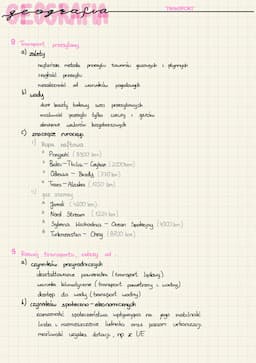 GEOGRAFIA
geografia
TRANSPORT
Transport przesyłowy
a) zalety
najtańsza metoda przesyłu towarów gazowych i płynnych
ciągłość przesyłu
niezależność od warunków pogodowych
b) wady
duże koszty budowy sieci przesyłowych
możliwość przesyłu tylko cieczy i gazów
c) znaczące rurociągi
i) Ropa naftowa
Przyjaźń (
Baku - Tbilisi - Ceyhan (
Odessa - Brody (
Trans-Alaska (
ii) gaz ziemny
Jamał (
Nord Stream (
Syberia Wschodnia - Ocean Spokojny (
Turkmenistan - Chiny (
Rozwój transportu zależy od
a) czynników przyrodniczych
ukształtowanie powierzchni (transport lądowy)
warunki klimatyczne (transport powietrzny i wodny)
dostęp do wody (transport wodny)
b) czynników społeczno-ekonomicznych
zamożność społeczeństwa wpływająca na jego mobilność
liczba i rozmieszczenie ludności oraz poziom urbanizacji
możliwość uzyskania dotacji, np z UE